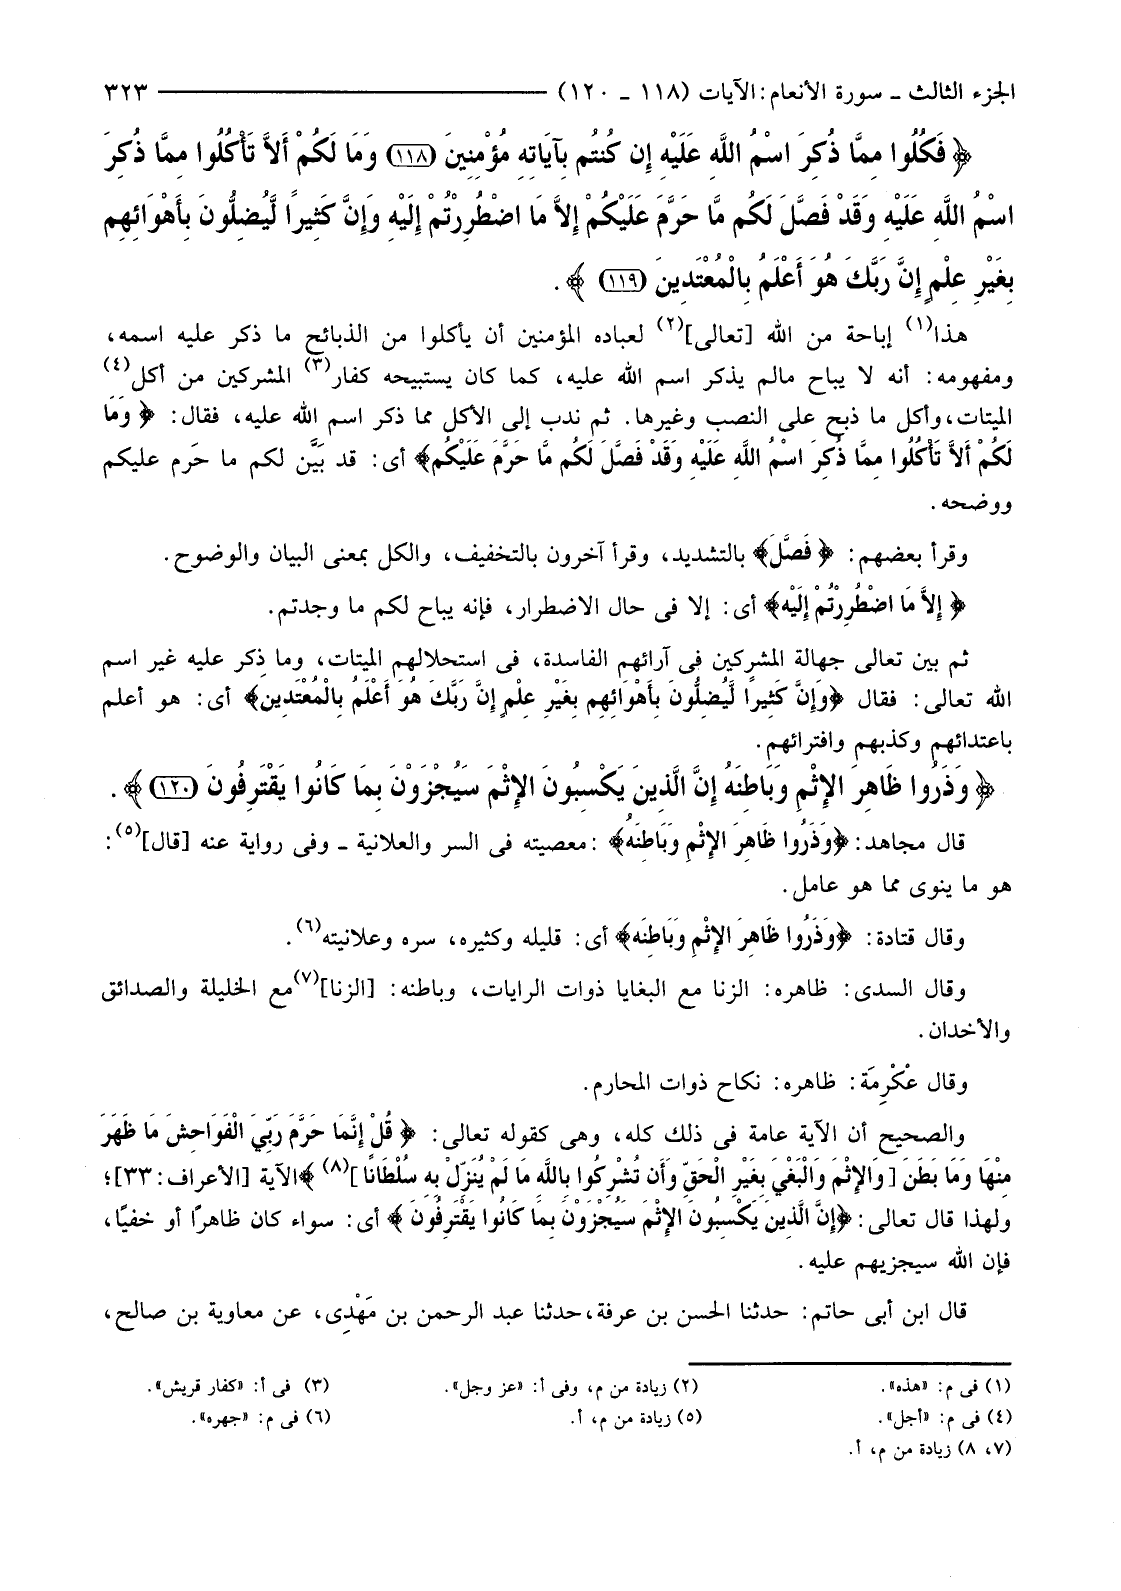 الجزء الثالث ـ سورة الأنعام: الآيات (١١٨ ـ ١٢٠) ٣٢٣
﴿ فَكُلُوا مِمَّا ذُكِرَ اسْمُ اللَّهِ عَلَيْهِ إِن كُنتُم بِآيَاتِهِ مُؤْمِنِينَ (١١٨) وَمَا لَكُمْ أَلاَّ تَأْكُلُوا مِمَّا ذُكِرَ
اسْمُ اللَّهِ عَلَيْهِ وَقَدْ فَصَّلَ لَكُم مَّا حَرَّمَ عَلَيْكُمْ إِلاَّ مَا اضْطُرِرْتُمْ إِلَيْهِ وَإِنَّ كَثِيرًا لَّيُضِلُّونَ بِأَهْوَائِهِم
بِغَيْرِ عِلْمٍ إِنَّ رَبَّكَ هُوَ أَعْلَمُ بِالْمُعْتَدِينَ (١١٩) ﴾ .
هذا(١) إباحة من الله [تعالى](٢) لعباده المؤمنين أن يأكلوا من الذبائح ما ذكر عليه اسمه،
ومفهومه: أنه لا يباح مالم يذكر اسم الله عليه، كما كان يستبيحه كفار(٣) المشركين من أكل(٤)
الميتات، وأكل ما ذبح على النصب وغيرها. ثم ندب إلى الأكل مما ذكر اسم الله عليه، فقال: ﴿ وَمَا
لَكُمْ أَلاَّ تَأْكُلُوا مِمَّا ذُكِرَ اسْمُ اللَّهِ عَلَيْهِ وَقَدْ فَصَّلَ لَكُم مَّا حَرَّمَ عَلَيْكُم﴾ أى: قد بَيَّن لكم ما حَرم عليكم
ووضحه.
وقرأ بعضهم: ﴿ فَصَّلَ﴾ بالتشديد، وقرأ آخرون بالتخفيف، والكل بمعنى البيان والوضوح.
﴿ إِلاَّ مَا اضْطُرِرْتُمْ إِلَيْهِ﴾ أى: إلا فى حال الاضطرار، فإنه يباح لكم ما وجدتم.
ثم بين تعالى جهالة المشركين فى آرائهم الفاسدة، فى استحلالهم الميتات، وما ذكر عليه غير اسم
الله تعالى: فقال ﴿وَإِنَّ كَثِيرًا لَّيُضِلُّونَ بِأَهْوَائِهِم بِغَيْرِ عِلْمٍ إِنَّ رَبَّكَ هُوَ أَعْلَمُ بِالْمُعْتَدِين﴾ أى: هو أعلم
باعتدائهم وكذبهم وافترائهم.
﴿ وَذَرُوا ظَاهِرَ الإِثْمِ وَبَاطِنَهُ إِنَّ الَّذِينَ يَكْسِبُونَ الإِثْمَ سَيُجْزَوْنَ بِمَا كَانُوا يَقْتَرِفُونَ (١٢٠) ﴾ .
قال مجاهد: ﴿وَذَرُوا ظَاهِرَ الإِثْمِ وَبَاطِنَهُ﴾ :معصيته فى السر والعلانية ـ وفى رواية عنه [قال](٥):
هو ما ينوى مما هو عامل.
وقال قتادة: ﴿وَذَرُوا ظَاهِرَ الإِثْمِ وَبَاطِنَه﴾ أى: قليله وكثيره، سره وعلانيته(٦).
وقال السدى: ظاهره: الزنا مع البغايا ذوات الرايات، وباطنه: [الزنا](٧)مع الخليلة والصدائق
والأخدان.
وقال عْكْرِمَة: ظاهره: نكاح ذوات المحارم.
والصحيح أن الآية عامة فى ذلك كله، وهى كقوله تعالى: ﴿ قُلْ إِنَّمَا حَرَّمَ رَبِّيَ الْفَوَاحِشَ مَا ظَهَرَ
مِنْهَا وَمَا بَطَنَ [وَالإِثْمَ وَالْبَغْيَ بِغَيْرِ الْحَقِّ وَأَن تُشْرِكُوا بِاللَّهِ مَا لَمْ يُنَزِّلْ بِهِ سُلْطَانًا](٨) ﴾الآية [الأعراف:٣٣]؛
ولهذا قال تعالى: ﴿إِنَّ الَّذِينَ يَكْسِبُونَ الإِثْمَ سَيُجْزَوْنَ بِمَا كَانُوا يَقْتَرِفُونَ ﴾ أى: سواء كان ظاهرًا أو خفيًا،
فإن الله سيجزيهم عليه.
قال ابن أبى حاتم: حدثنا الحسن بن عرفة، حدثنا عبد الرحمن بن مَهْدِى، عن معاوية بن صالح،
(١) فى م: «هذه». (٢) زيادة من م، وفى أ: «عز وجل». (٣) فى أ: «كفار قريش».
(٤) فى م: «أجل». (٥) زيادة من م، أ. (٦) فى م: «جهره».
(٧، ٨) زيادة من م، أ.